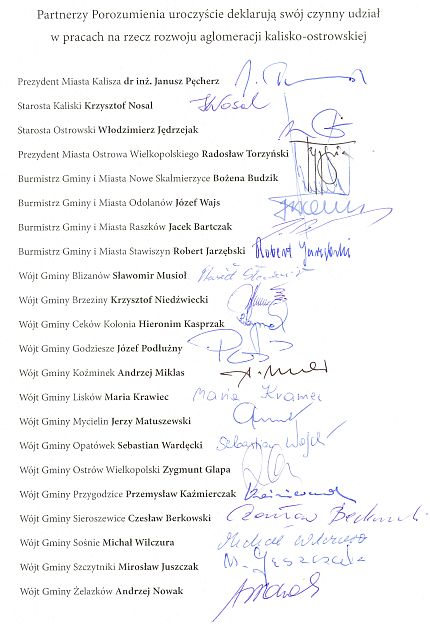 Partnerzy Porozumienia uroczyście deklarują swój czynny udział
w pracach na rzecz rozwoju aglomeracji kalisko-ostrowskiej
Prezydent Miasta Kalisza dr inż. Janusz Pęcherz
Starosta Kaliski Krzysztof Nosal
Starosta Ostrowski Włodzimierz Jędrzejak
Prezydent Miasta Ostrowa Wielkopolskiego Radosław Torzyński
Burmistrz Gminy i Miasta Nowe Skalmierzyce Bożena Budzik
Burmistrz Gminy i Miasta Odolanów Józef Wajs
Burmistrz Gminy i Miasta Raszków Jacek Bartczak
Burmistrz Gminy i Miasta Stawiszyn Robert Jarzębski Robert Jarzębski
Wójt Gminy Blizanów Sławomir Musioł
Wójt Gminy Brzeziny Krzysztof Niedźwiecki
Wójt Gminy Ceków Kolonia Hieronim Kasprzak
Wójt Gminy Godziesze Józef Podłużny
Wójt Gminy Koźminek Andrzej Miklas
Wójt Gminy Lisków Maria Krawiec Maria
Wójt Gminy Mycielin Jerzy Matuszewski
Wójt Gminy Opatówek Sebastian Wardęcki Sebastian
Wójt Gminy Ostrów Wielkopolski Zygmunt Głapa
Wójt Gminy Przygodzice Przemysław Kaźmierczak
Wójt Gminy Sieroszewice Czesław Berkowski Czesław
Wójt Gminy Sośnie Michał Wilczura Michał
Wójt Gminy Szczytniki Mirosław Juszczak
Wójt Gminy Żelazków Andrzej Nowak